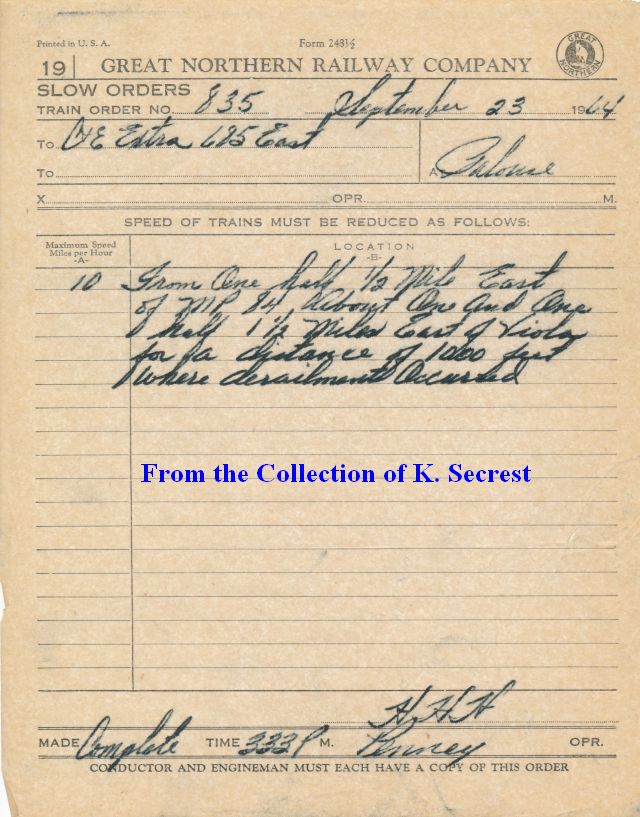 Printed in U. S. A. Form 2481½
GREAT NORTHERN
19 GREAT NORTHERN RAILWAY COMPANY
SLOW ORDERS
TRAIN ORDER NO. 835 September 23 1964
To C&E Extra 685 East
To At Palouse
X OPR. M.
SPEED OF TRAINS MUST BE REDUCED AS FOLLOWS:
Maximum Speed Miles per Hour -A- LOCATION -B-
10 From One half ½ Mile East
of MP 84, About One And One
half 1½ Miles East of Viola
for a distance of 1000 feet
Where derailment Occurred
From the Collection of K. Secrest
H.H.H
MADE Complete TIME 333 P M. Penney OPR.
CONDUCTOR AND ENGINEMAN MUST EACH HAVE A COPY OF THIS ORDER